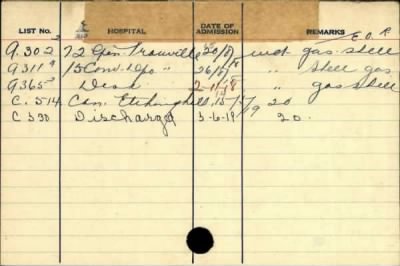 LIST No. HOSPITAL DATE OF ADMISSION REMARKS
A.302 72 Gen Trouville 20/8/ wd gas-shell
A311 13 Con. Dpo " 26/8/18 " Shell gas
A365 Desn 2-11-18 " gas shell
C.514 Can. Etchinghill 15/5/19 20
C 530 Discharged 3-6-19 20.